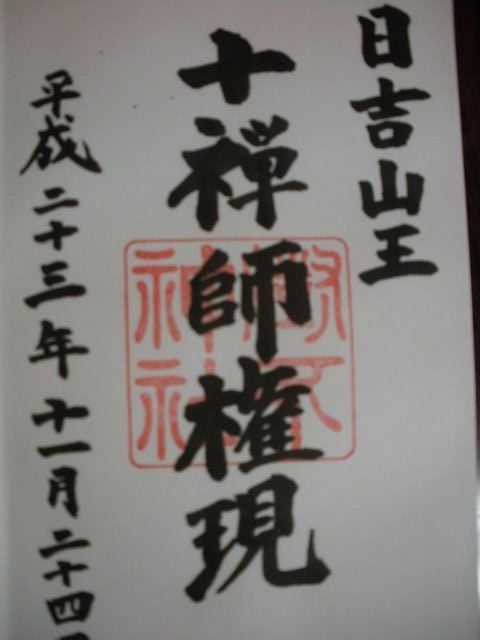 日吉山王
十禅師権現
平成二十三年十一月二十四日
神社